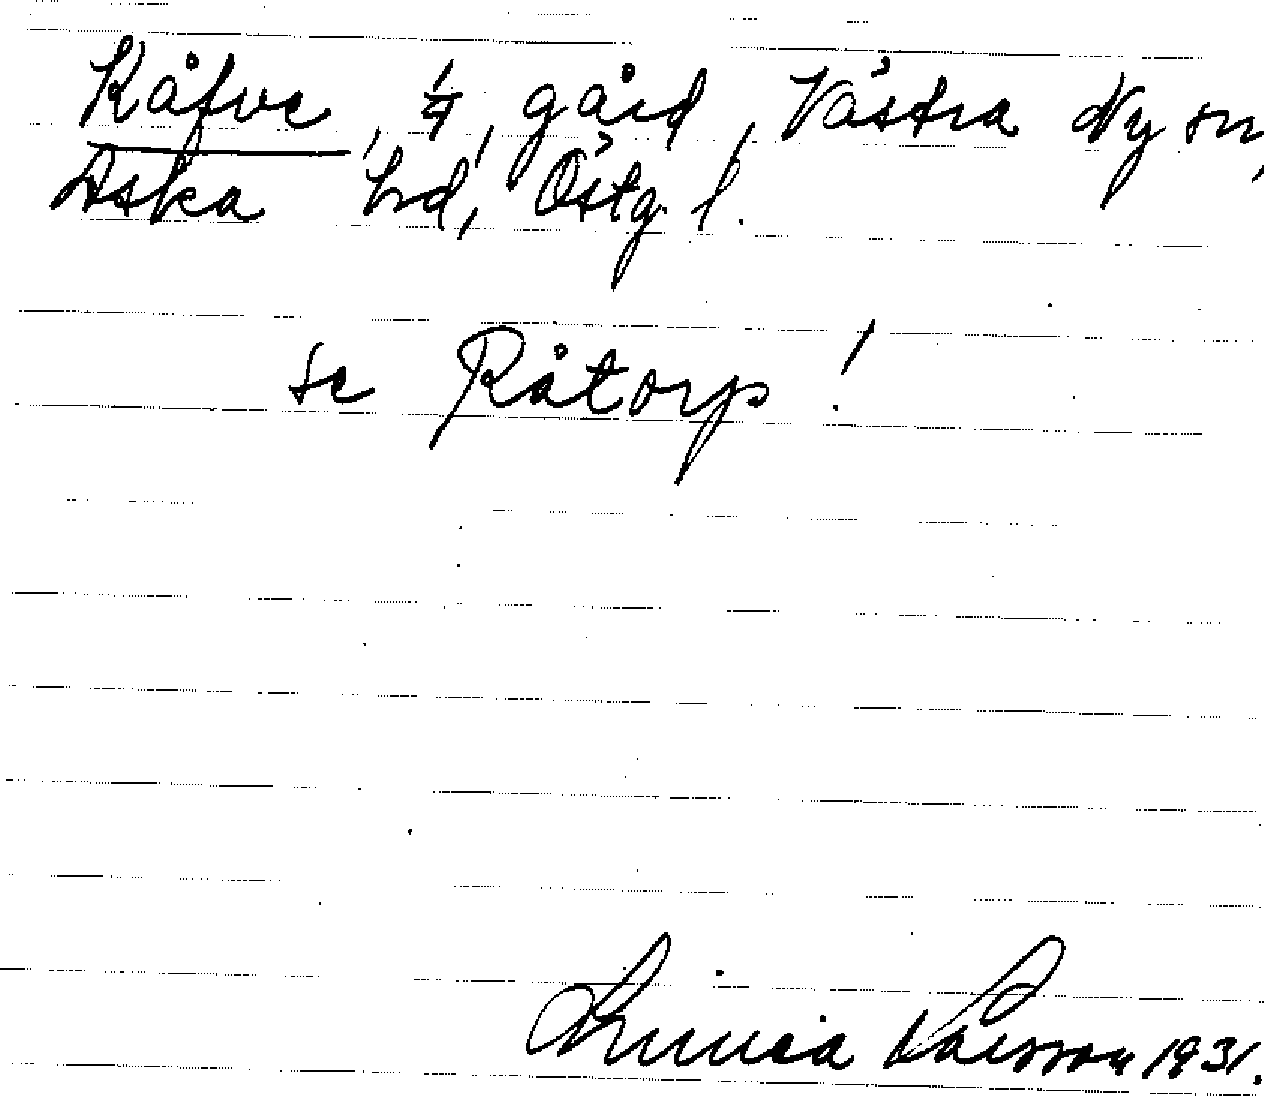 Råfve, 1/4, gård, Västra Ny sn,
Aska hd, Östg. l.
se Råtorp!
Linnéa Larsson 1931.